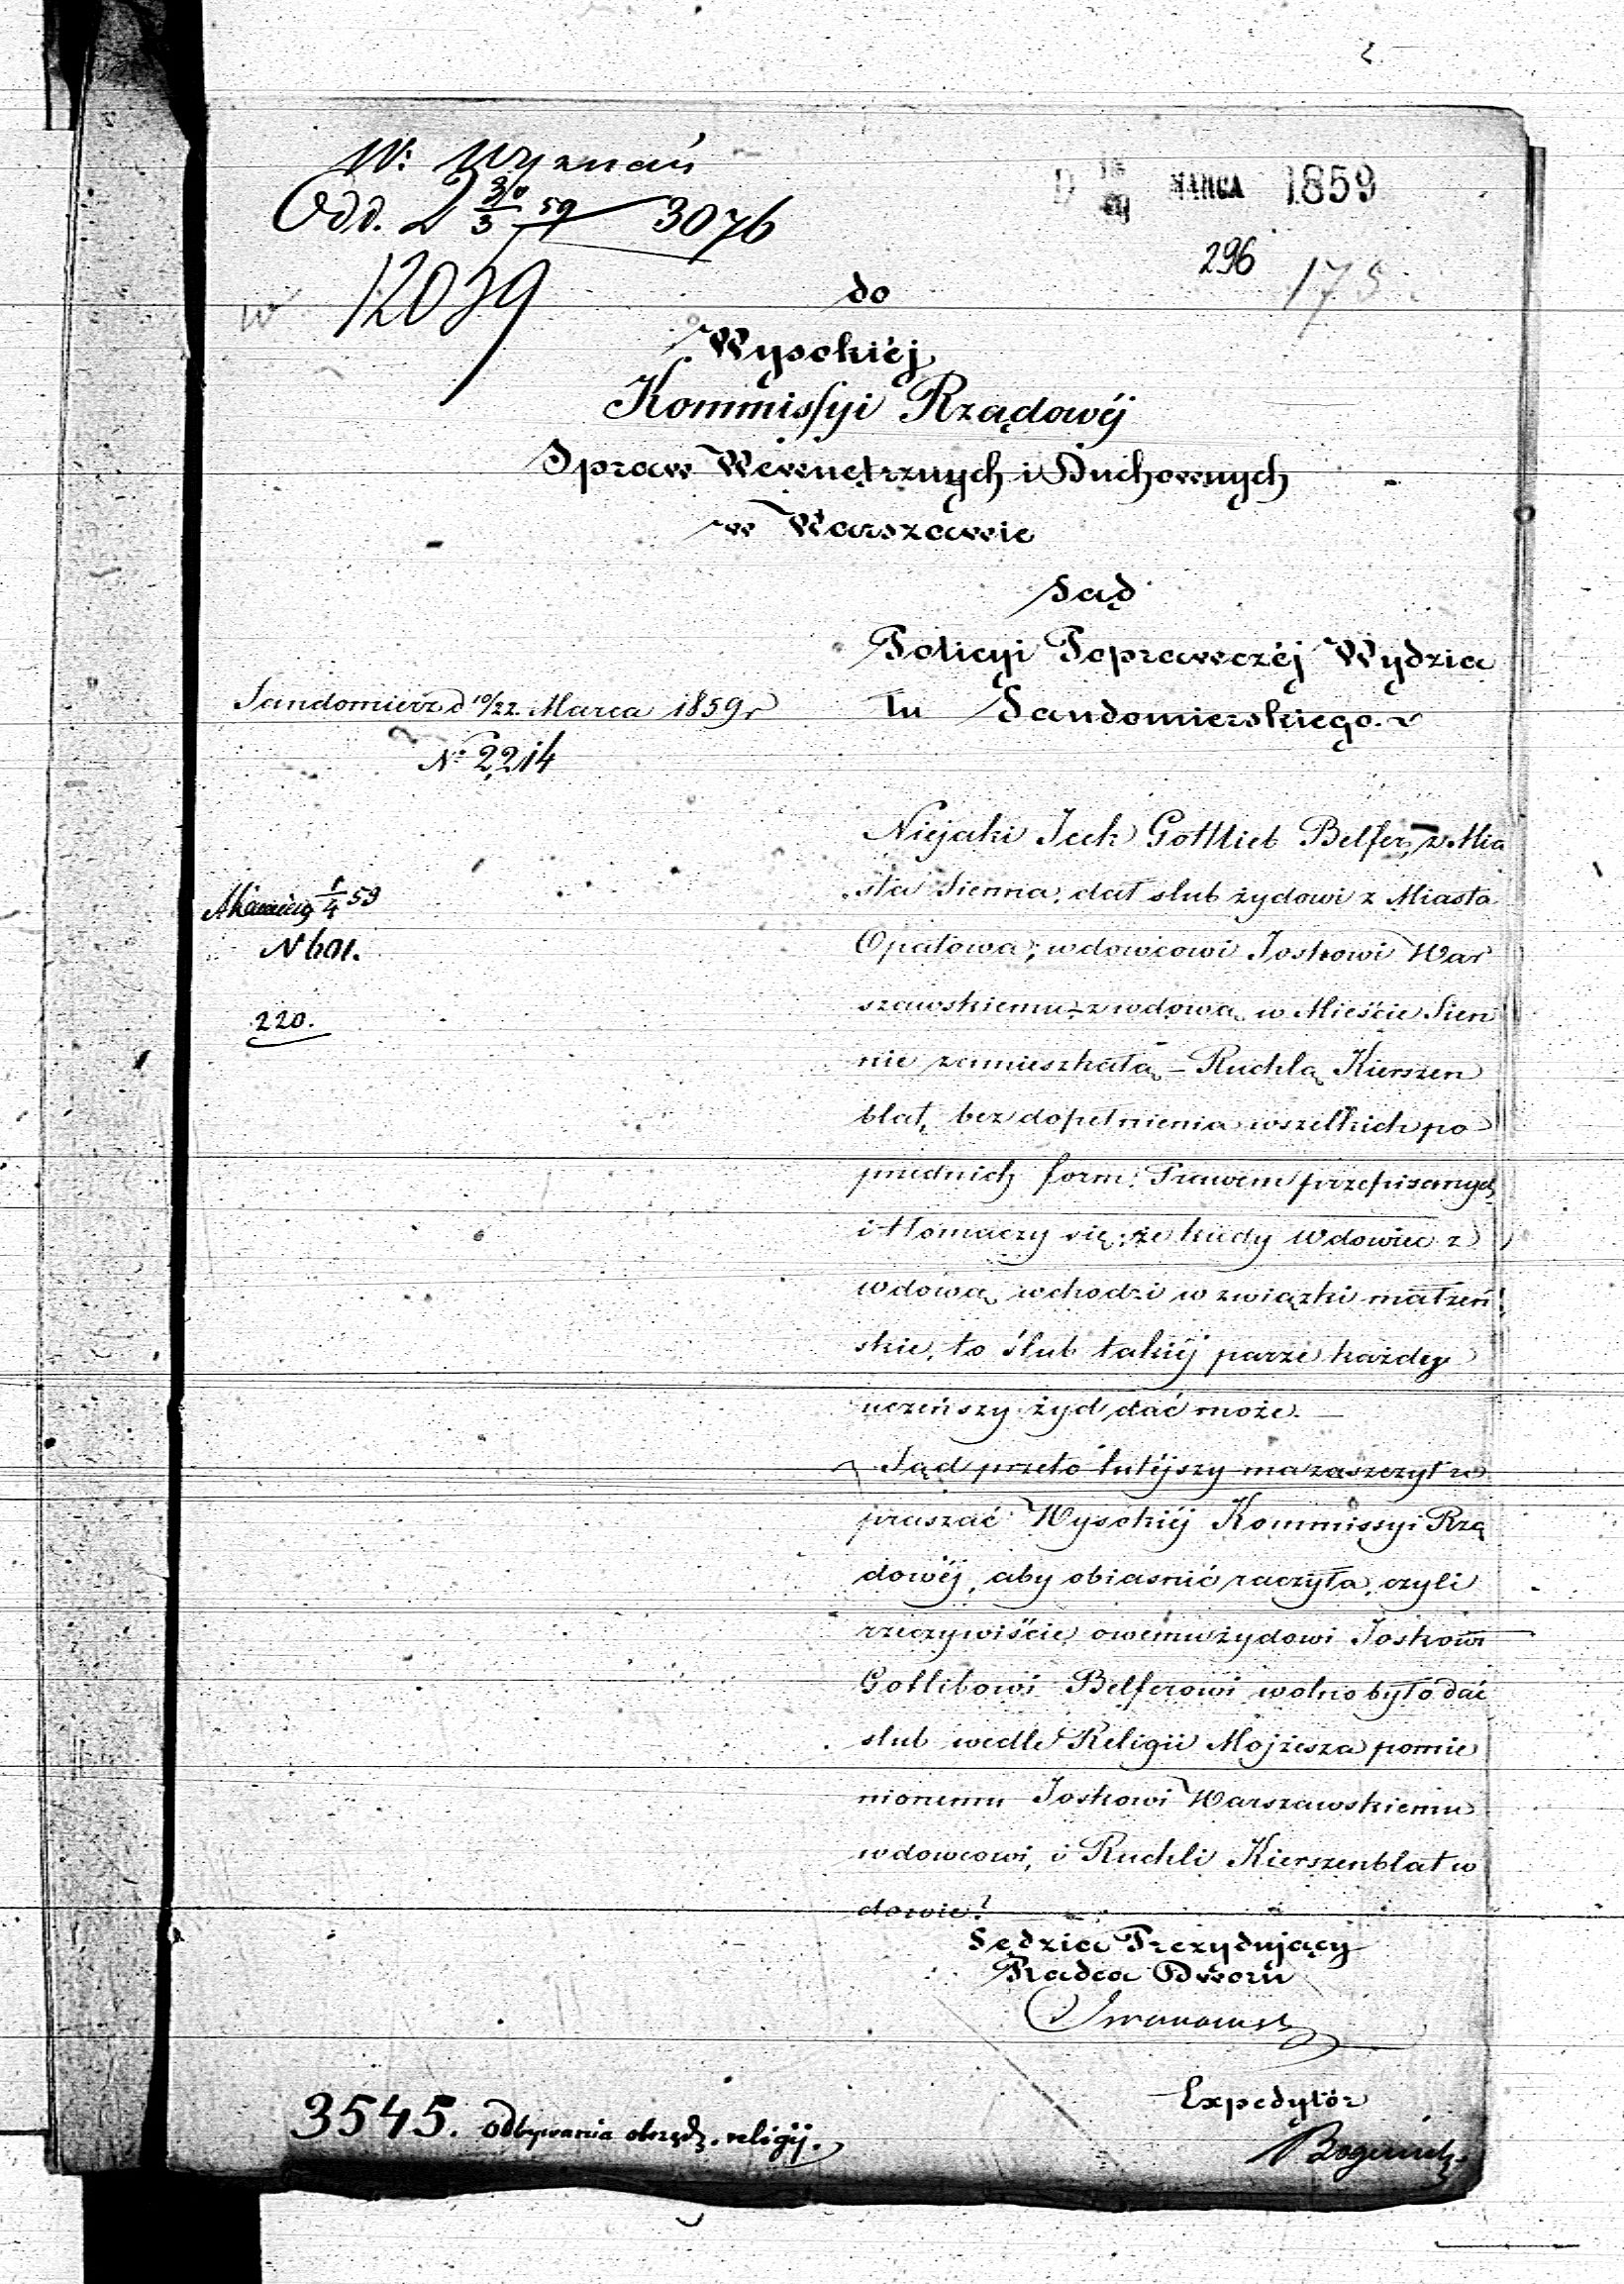 W: Wyznań
Odd. 2 30/3 59 3076
12039
D MARCA 1859
296 175
do
Wysokiéj
Kommissyi Rządowéj
Spraw Wewnętrznych i Duchownych
w Warszawie
Sąd
Policyi Poprawczéj Wydzia
łu Sandomierskiego.
Sandomierz d 10/22 Marca 1859 r
N° 2214
59
N 601.
220.
Niejaki Icek Gottlieb Belfer, z Mia
sta Sienna, dał slub żydowi z Miasta
Opatowa, wdowcowi Joskowi War
szawskiemu z wdową w Mieście Sien
nie zamieszkałą – Ruchlą Kierszen
blat, bez dopełnienia wszelkich po
przednich form Prawem przepisanych
i tłomaczy się, że kiedy Wdowiec z
wdową wchodzi w związki małżeń
skie, to ślub takiéj parze każdy
uczeńszy żyd dać może. –
Sąd przeto tutéjszy ma zaszczyt u
praszać Wysokiéj Kommissyi Rzą
dowéj, aby obiasnić raczyła, czyli
rzeczywiście owemu żydowi Joskowi
Gotlibowi Belferowi wolno było dać
slub wedle Religii Mojżesza pomie
nionemu Joskowi Warszawskiemu
wdowcowi, i Ruchli Kierszenblat w
dowie?
Sędzia Prezydujący
Radca Dworu
Expedytor
3545. Odbywania obrzędz. religij.